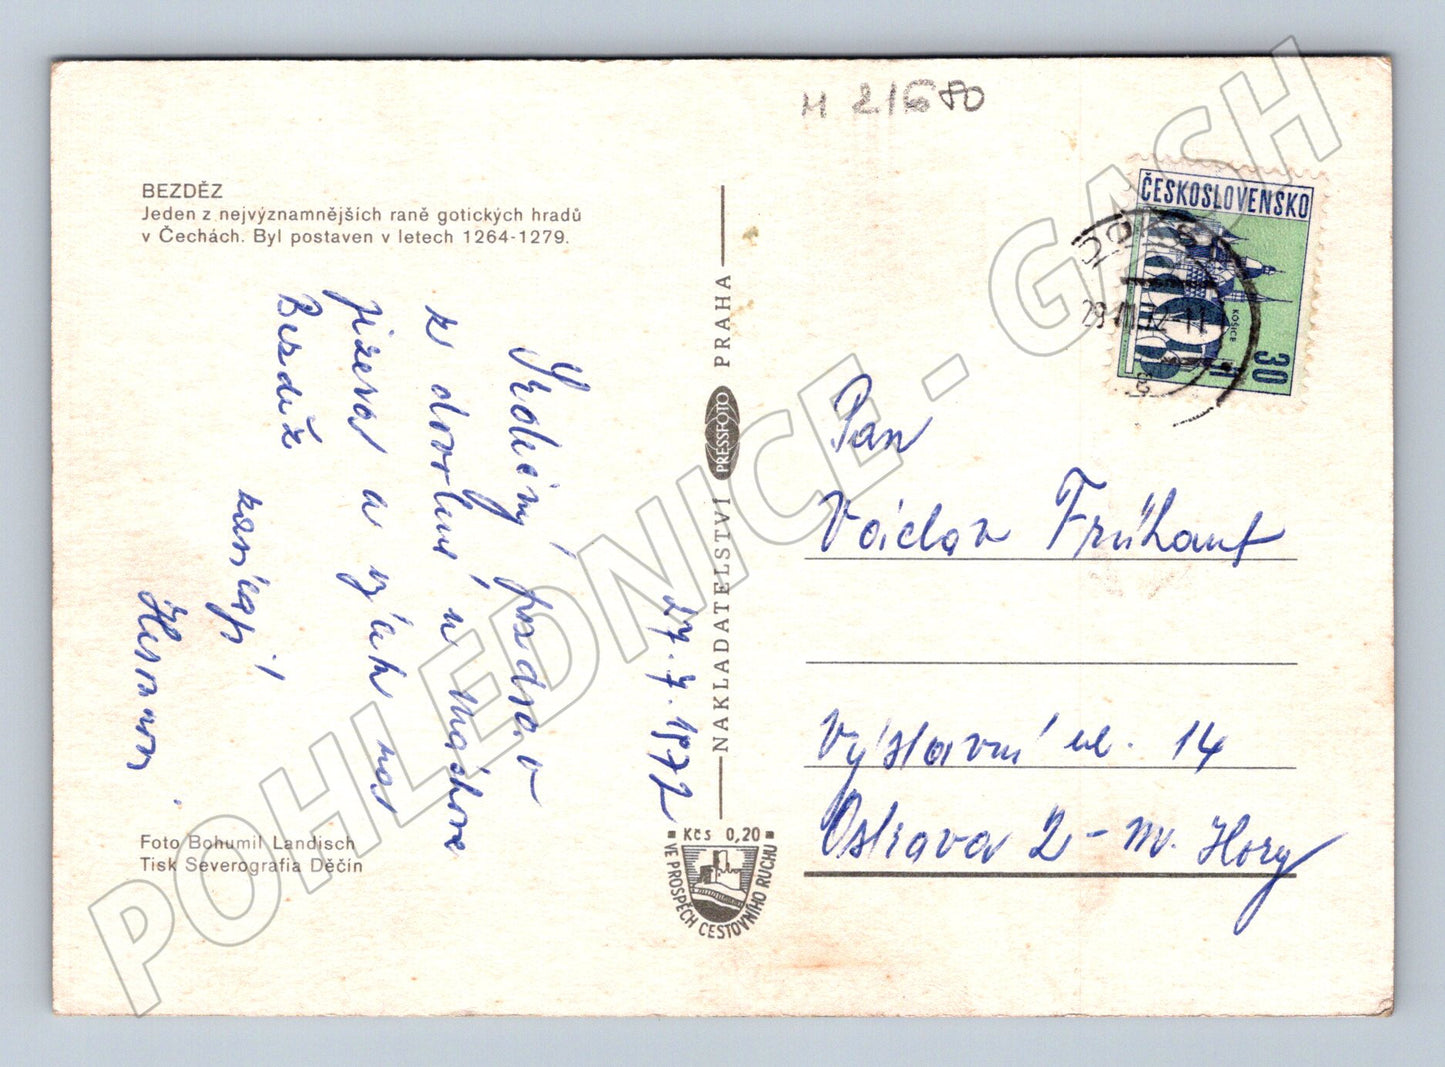 M 21680
BEZDĚZ
Jeden z nejvýznamnějších raně gotických hradů
v Čechách. Byl postaven v letech 1264-1279.
27. 7. 1972
Srdečný pozdrav
z dovolené u Máchova
jezera a výlet na
Bezděz
zasílají
Foto Bohumil Landisch
Tisk Severografia Děčín
NAKLADATELSTVÍ PRESSFOTO PRAHA
Kčs 0,20
VE PROSPĚCH CESTOVNÍHO RUCHU
ČESKOSLOVENSKO
KOŠICE
30 H
Pan
Václav Frühauf
Výstavní ul. 14
Ostrava 2 - M. Hory
POHLEDNICE - GASH